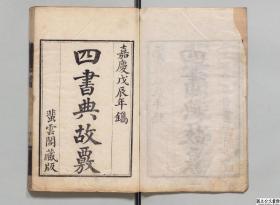 嘉慶戊辰年鐫
四書典故覈
藏版